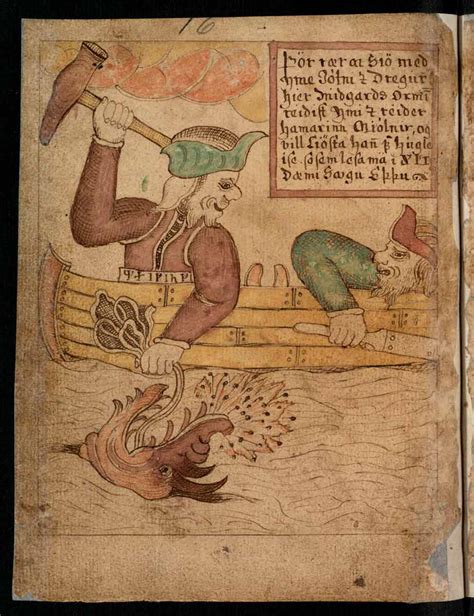 16
Þör rær ai Siö med
Hyme Jötni & Dregur
hier Midgards Ormiñ
reidist Ymi & reider
hamarinn Miolnir, og
vill liösta hañ Hugle
ise. sosem lesa mä i XLI
Dæmi Sögu Eddu